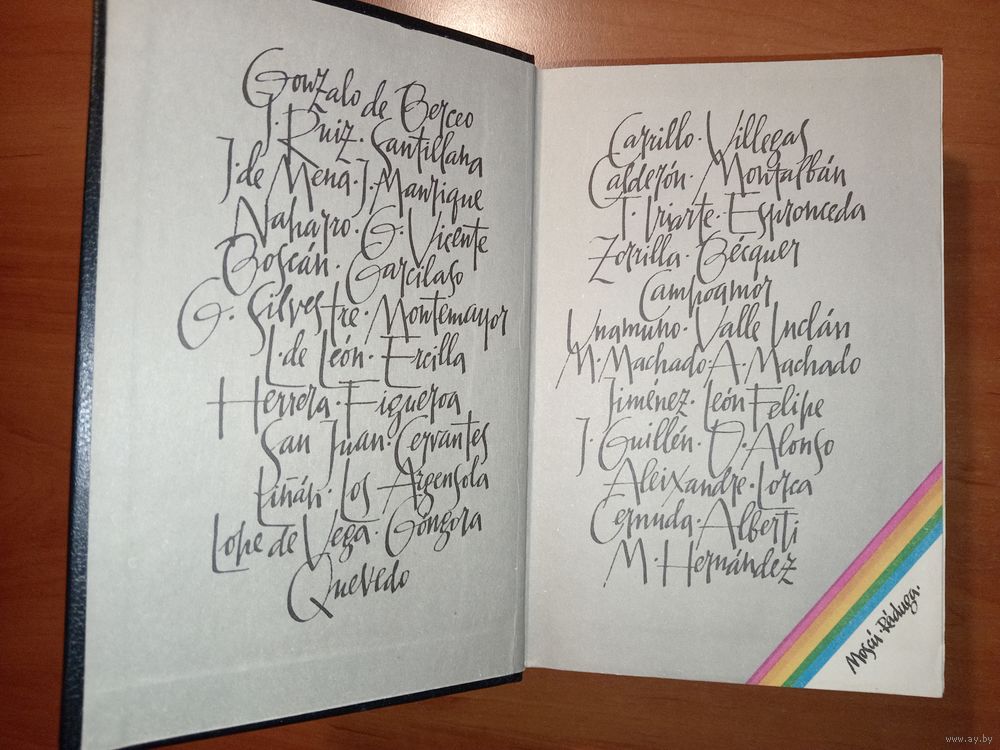 Gonzalo de Berceo
J. Ruiz · Santillana
J. de Mena · J. Manrique
Naharro · G. Vicente
Boscán · Garcilaso
G. Silvestre · Montemayor
L. de León · Ercilla
Herrera · Figueroa
San Juan · Cervantes
Liñán · Los Argensola
Lope de Vega · Góngora
Quevedo
Carrillo · Villegas
Calderón · Montalbán
T. Iriarte · Espronceda
Zorrilla · Bécquer
Campoamor
Unamuno · Valle Inclán
M. Machado · A. Machado
Jiménez · León Felipe
J. Guillén · D. Alonso
Aleixandre · Lorca
Cernuda · Alberti
M. Hernández
Moscú · Ráduga ·
www.ay.by